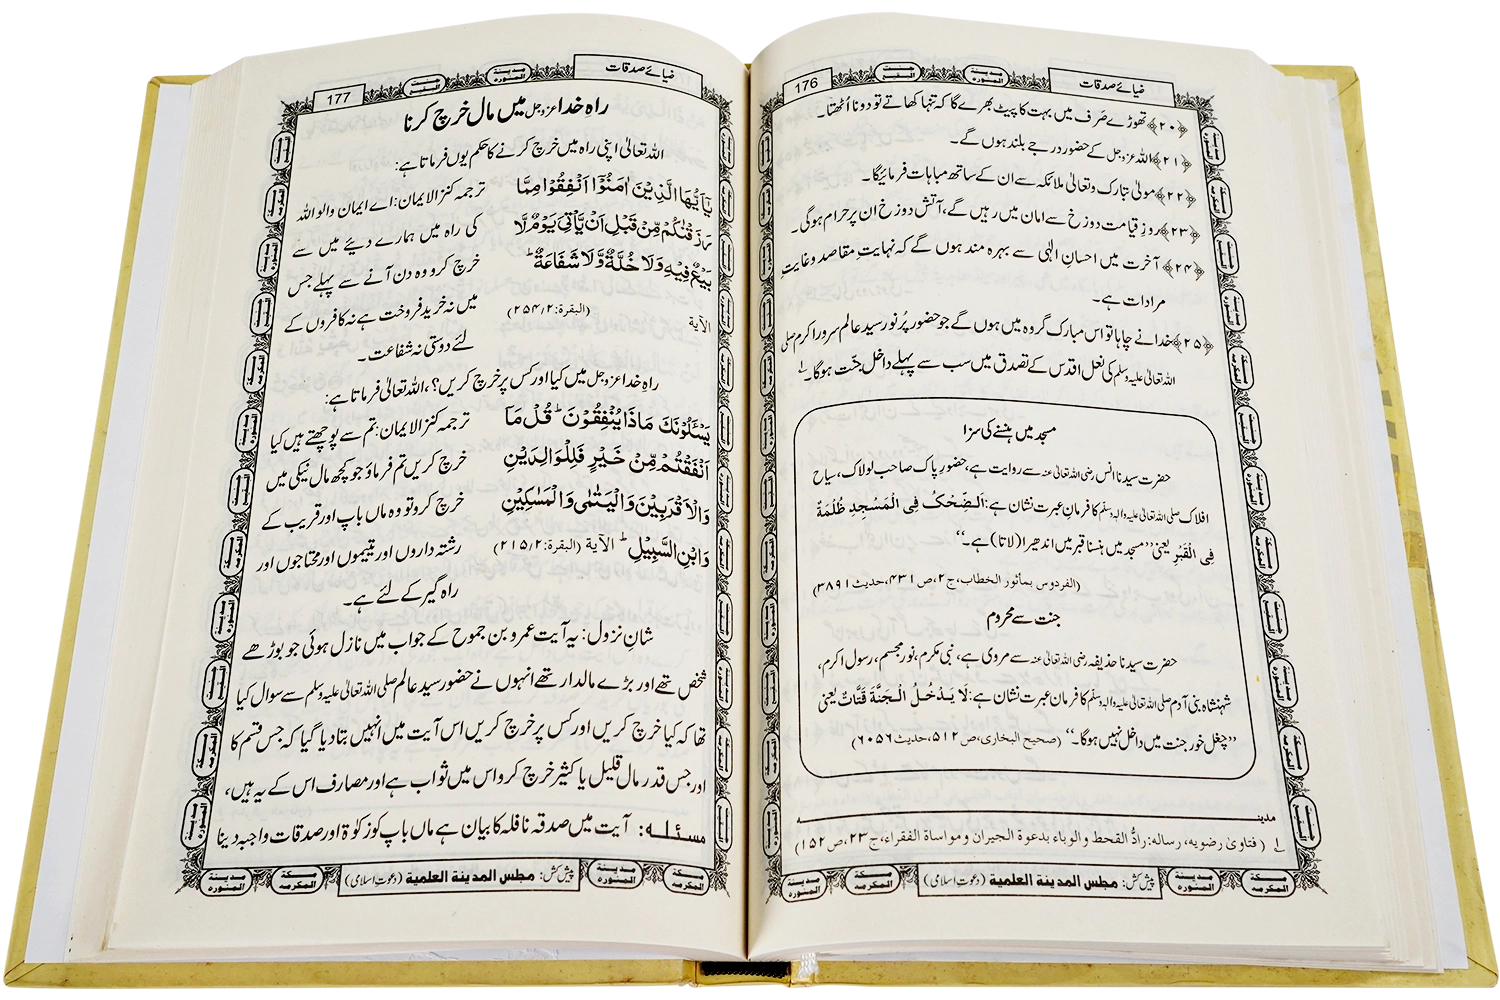 ضیائے صدقات
مدینۃ المنورہ
جنت البقیع
176
﴿۲۰﴾ تھوڑے صَرف میں بہت کا پیٹ بھرے گا کہ تنہا کھاتے تو دونا اُٹھتا۔
﴿۲۱﴾ اللہ عزوجل کے حضور درجے بلند ہوں گے۔
﴿۲۲﴾ مولیٰ تبارک وتعالیٰ ملائکہ سے ان کے ساتھ مباہات فرمائیگا۔
﴿۲۳﴾ روزِ قیامت دوزخ سے امان میں رہیں گے، آتش دوزخ ان پر حرام ہوگی۔
﴿۲۴﴾ آخرت میں احسانِ الٰہی سے بہرہ مند ہوں گے کہ نہایتِ مقاصد وغایتِ
مرادات ہے۔
﴿۲۵﴾ خدا نے چاہا تو اس مبارک گروہ میں ہوں گے جو حضور پُرنور سید عالم سرور اکرم صلی
اللہ تعالیٰ علیہ وسلم کی نعل اقدس کے تصدق میں سب سے پہلے داخل جنّت ہوگا۔ ۱؎
مسجد میں ہنسنے کی سزا
حضرت سیدنا انس رضی اللہ تعالیٰ عنہ سے روایت ہے، حضورِ پاک صاحب لولاک، سیاح
افلاک صلی اللہ تعالیٰ علیہ والہ وسلم کا فرمانِ عبرت نشان ہے: اَلضِّحْکُ فِی الْمَسْجِدِ ظُلْمَةٌ
فِی الْقَبْرِ یعنی ’’مسجد میں ہنسنا قبر میں اندھیرا (لاتا) ہے۔‘‘
(الفردوس بمأثور الخطاب، ج۲، ص۴۳۱، حدیث ۳۸۹۱)
جنت سے محروم
حضرت سیدنا حذیفہ رضی اللہ تعالیٰ عنہ سے مروی ہے، نبی مکرم، نور مجسم، رسول اکرم،
شہنشاہ بنی آدم صلی اللہ تعالیٰ علیہ والہ وسلم کا فرمان عبرت نشان ہے: لَا يَدْخُلُ الْجَنَّةَ قَتَّاتٌ یعنی
’’چغل خور جنت میں داخل نہیں ہوگا۔‘‘ (صحیح البخاری، ص۵۱۲، حدیث ۶۰۵۶)
مدینہ
۱؎ (فتاویٰ رضویہ، رسالہ: رادُّ القحط والوباء بدعوۃ الجیران ومواساۃ الفقراء، ج۲۳، ص۱۵۲)
پیش کش: مجلس المدینۃ العلمیۃ (دعوت اسلامی)
ضیائے صدقات
مدینۃ المنورہ
جنت البقیع
177
راہِ خدا عزوجل میں مال خرچ کرنا
اللہ تعالیٰ اپنی راہ میں خرچ کرنے کا حکم یوں فرماتا ہے:
يٰۤاَيُّهَا الَّذِيْنَ اٰمَنُوْۤا اَنْفِقُوْا مِمَّا ترجمہ کنز الایمان: اے ایمان والو اللہ
رَزَقْنٰكُمْ مِّنْ قَبْلِ اَنْ يَّاْتِيَ يَوْمٌ لَّا کی راہ میں ہمارے دیئے میں سے
بَيْعٌ فِيْهِ وَلَا خُلَّةٌ وَّلَا شَفَاعَةٌ ؕ خرچ کرو وہ دن آنے سے پہلے جس
الآیة (البقرة:۲/۲۵۴) میں نہ خرید فروخت ہے نہ کافروں کے
لئے دوستی نہ شفاعت۔
راہِ خدا عزوجل میں کیا اور کس پر خرچ کریں؟، اللہ تعالیٰ فرماتا ہے:
يَسْـَٔلُوْنَكَ مَاذَا يُنْفِقُوْنَ ؕ قُلْ مَاۤ ترجمہ کنز الایمان: تم سے پوچھتے ہیں کیا
اَنْفَقْتُمْ مِّنْ خَيْرٍ فَلِلْوَالِدَيْنِ خرچ کریں تم فرماؤ جو کچھ مال نیکی میں
وَالْاَقْرَبِيْنَ وَالْيَتٰمٰى وَالْمَسٰكِيْنِ خرچ کرو تو وہ ماں باپ اور قریب کے
وَابْنِ السَّبِيْلِ ؕ الآیة (البقرة:۲/۲۱۵) رشتہ داروں اور یتیموں اور محتاجوں اور
راہ گیر کے لئے ہے۔
شانِ نزول: یہ آیت عمرو بن جموح کے جواب میں نازل ہوئی جو بوڑھے
شخص تھے اور بڑے مالدار تھے انہوں نے حضور سید عالم صلی اللہ تعالیٰ علیہ وسلم سے سوال کیا
تھا کہ کیا خرچ کریں اور کس پر خرچ کریں اس آیت میں انہیں بتا دیا گیا کہ جس قسم کا
اور جس قدر مال قلیل یا کثیر خرچ کرو اس میں ثواب ہے اور مصارف اس کے یہ ہیں،
مسئلہ: آیت میں صدقہ نافلہ کا بیان ہے ماں باپ کو زکوٰۃ اور صدقات واجبہ دینا
پیش کش: مجلس المدینۃ العلمیۃ (دعوت اسلامی)